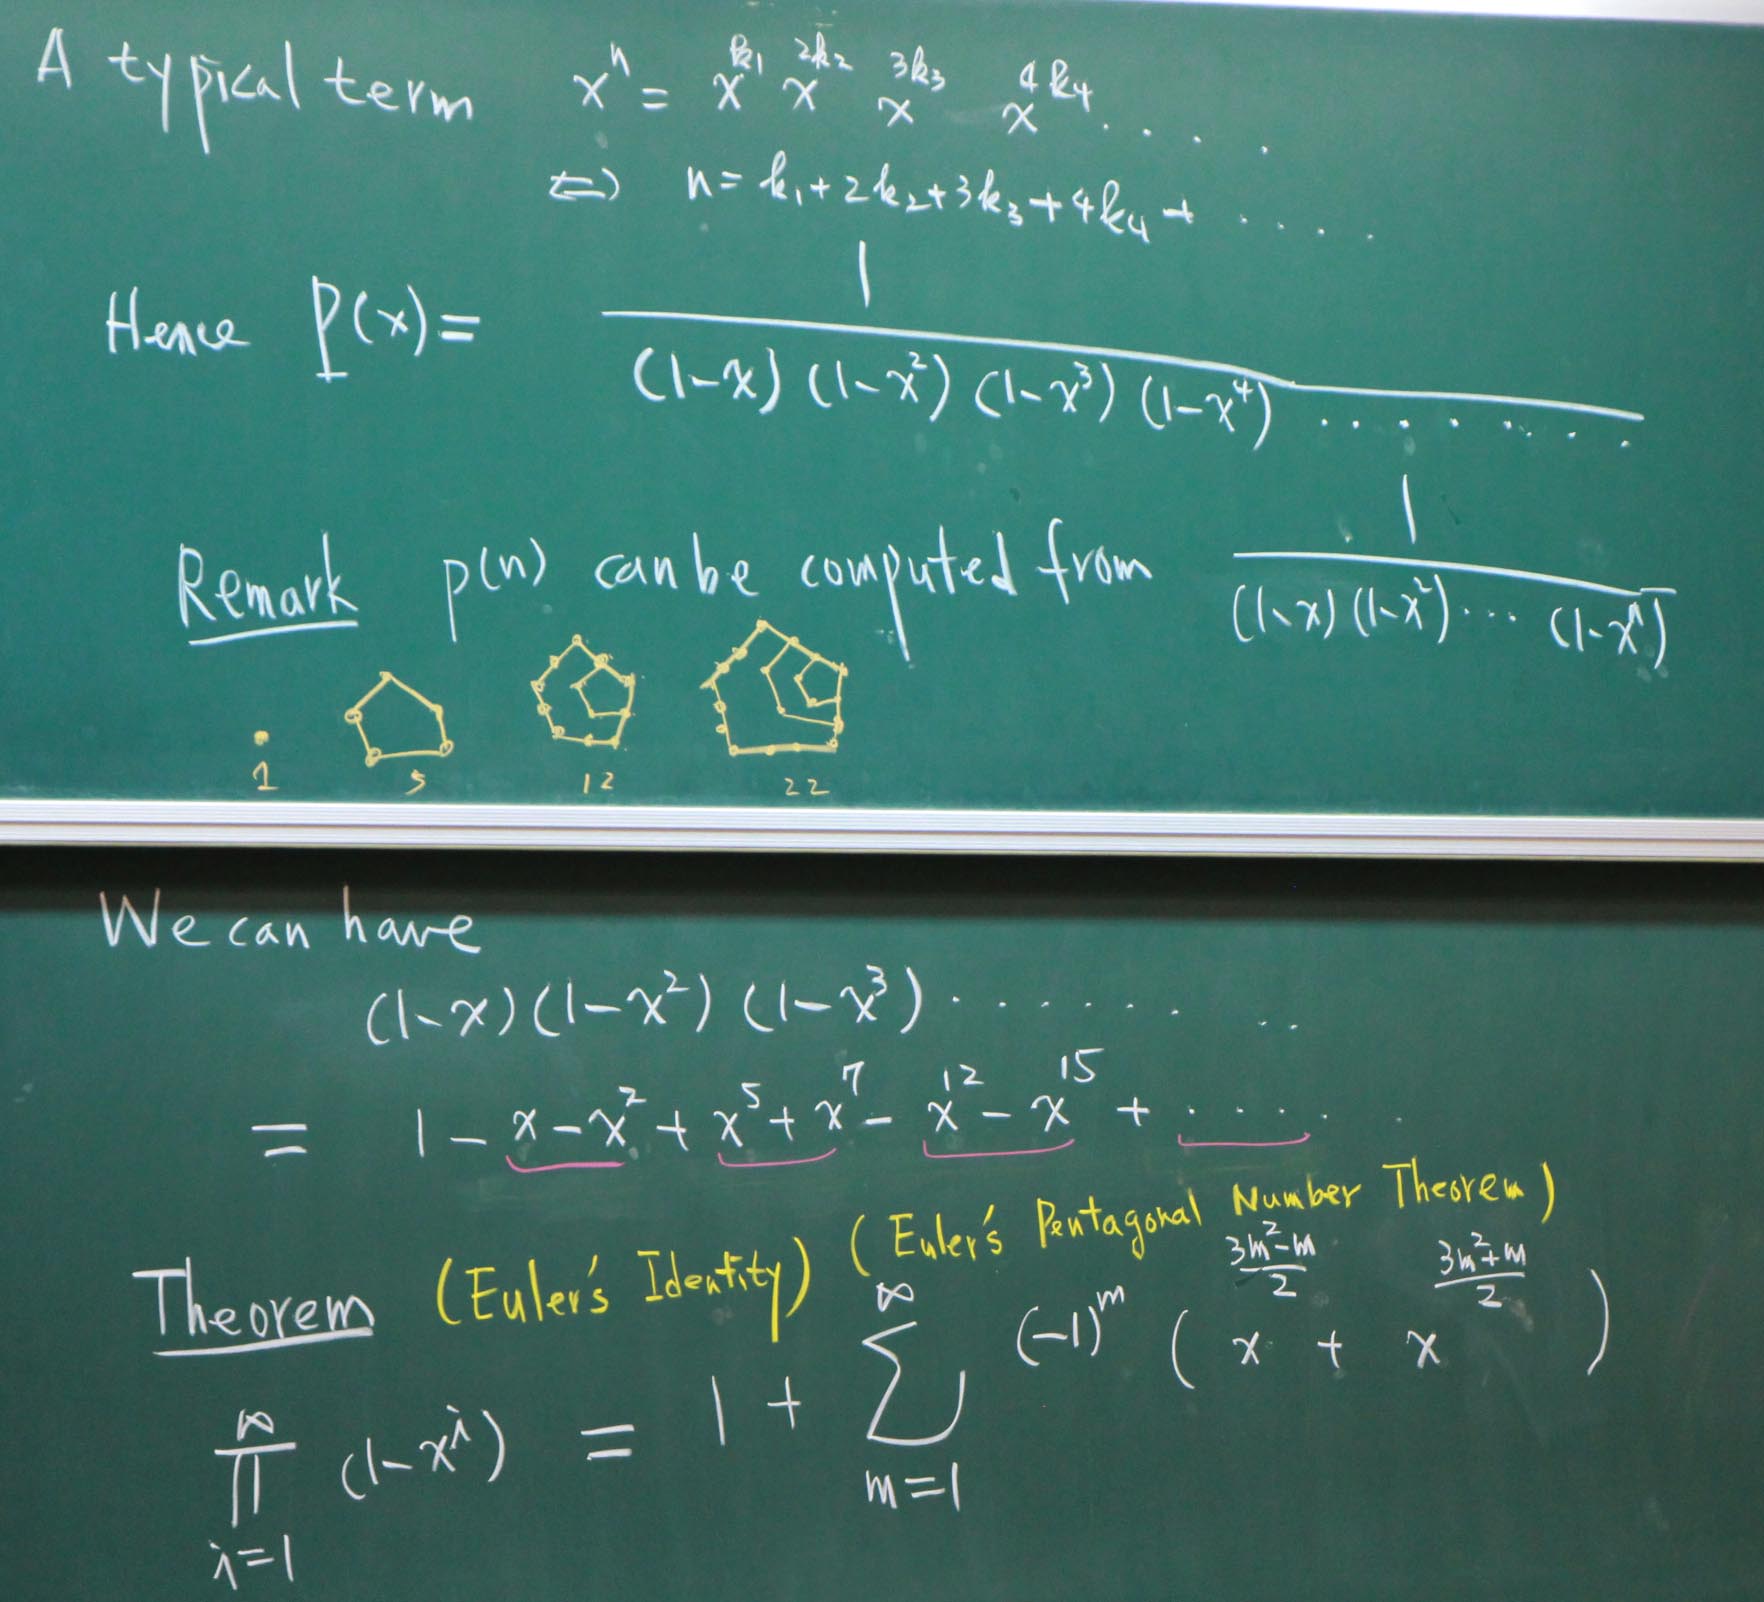 A typical term xⁿ = x^{k₁} x^{2k₂} x^{3k₃} x^{4k₄} ......
⇔ n = k₁ + 2k₂ + 3k₃ + 4k₄ + ....
Hence P(x) = 1 / (1-x)(1-x²)(1-x³)(1-x⁴) ........
Remark p(n) can be computed from 1 / (1-x)(1-x²)...(1-xⁿ)
1 5 12 22
We can have
(1-x)(1-x²)(1-x³)........
= 1 - x - x² + x⁵ + x⁷ - x¹² - x¹⁵ + ......
Theorem (Euler's Identity) (Euler's Pentagonal Number Theorem)
∏_{i=1}^{∞} (1-x^i) = 1 + ∑_{m=1}^{∞} (-1)^m ( x^{(3m²-m)/2} + x^{(3m²+m)/2} )